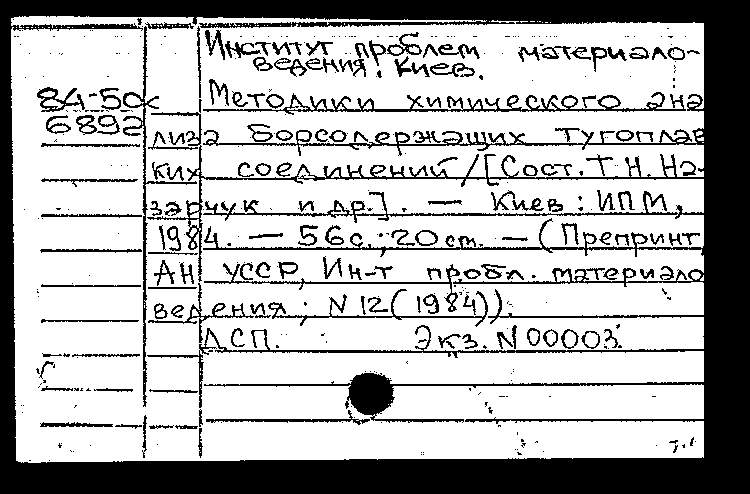 Институт проблем материало-
ведения. Киев.
84-50с
6892
Методики химического ана
лиза борсодержащих тугоплав
ких соединений/[Сост. Т.Н. На-
зарчук и др.]. — Киев: ИПМ,
1984. — 56с.; 20 ст. — (Препринт,
АН УССР, Ин-т пробл. материало
ведения; N 12(1984)).
ДСП. Экз. N 00003.